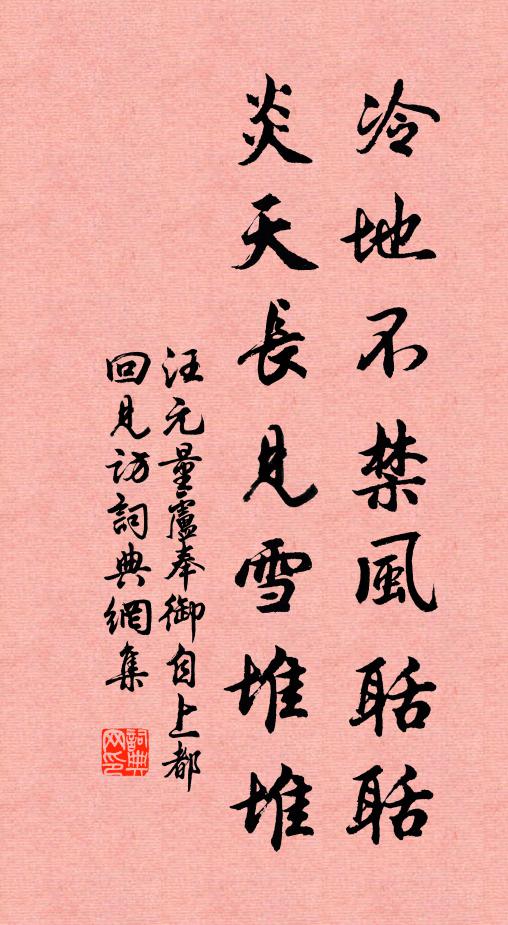 冷地不禁風聒聒
炎天長見雪堆堆
汪元量盧奉御自上都
回見訪詞典網集
詞典
网印